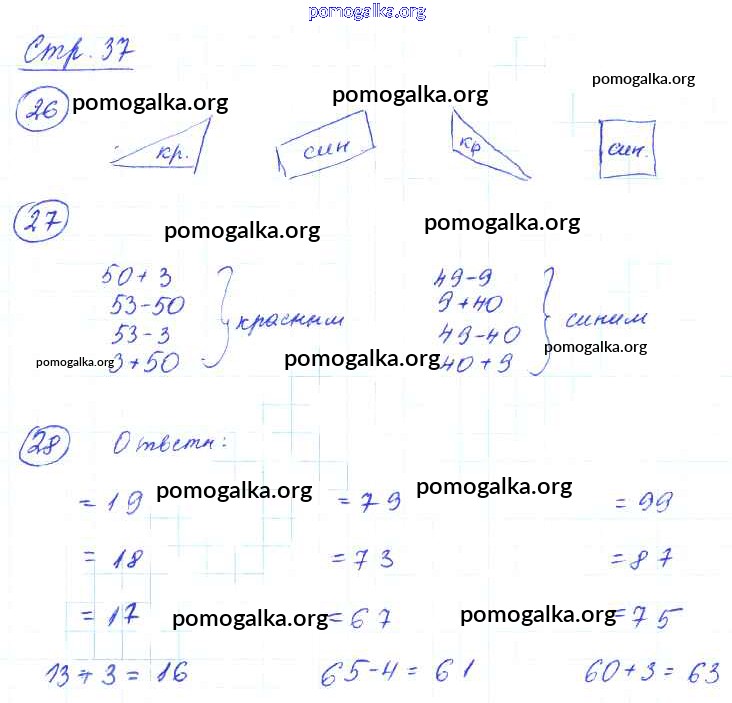 pomogalka.org
Стр. 37
pomogalka.org
26 pomogalka.org pomogalka.org
кр. син кр син.
27
pomogalka.org pomogalka.org
50+3 49-9
53-50 9+40
53-3 красным 49-40 синим
pomogalka.org 3+50 pomogalka.org 40+9 pomogalka.org
28 Ответы:
=19 pomogalka.org =79 pomogalka.org =99
=18 =73 =87
=17 pomogalka.org =67 pomogalka.org =75
13+3=16 65-4=61 60+3=63